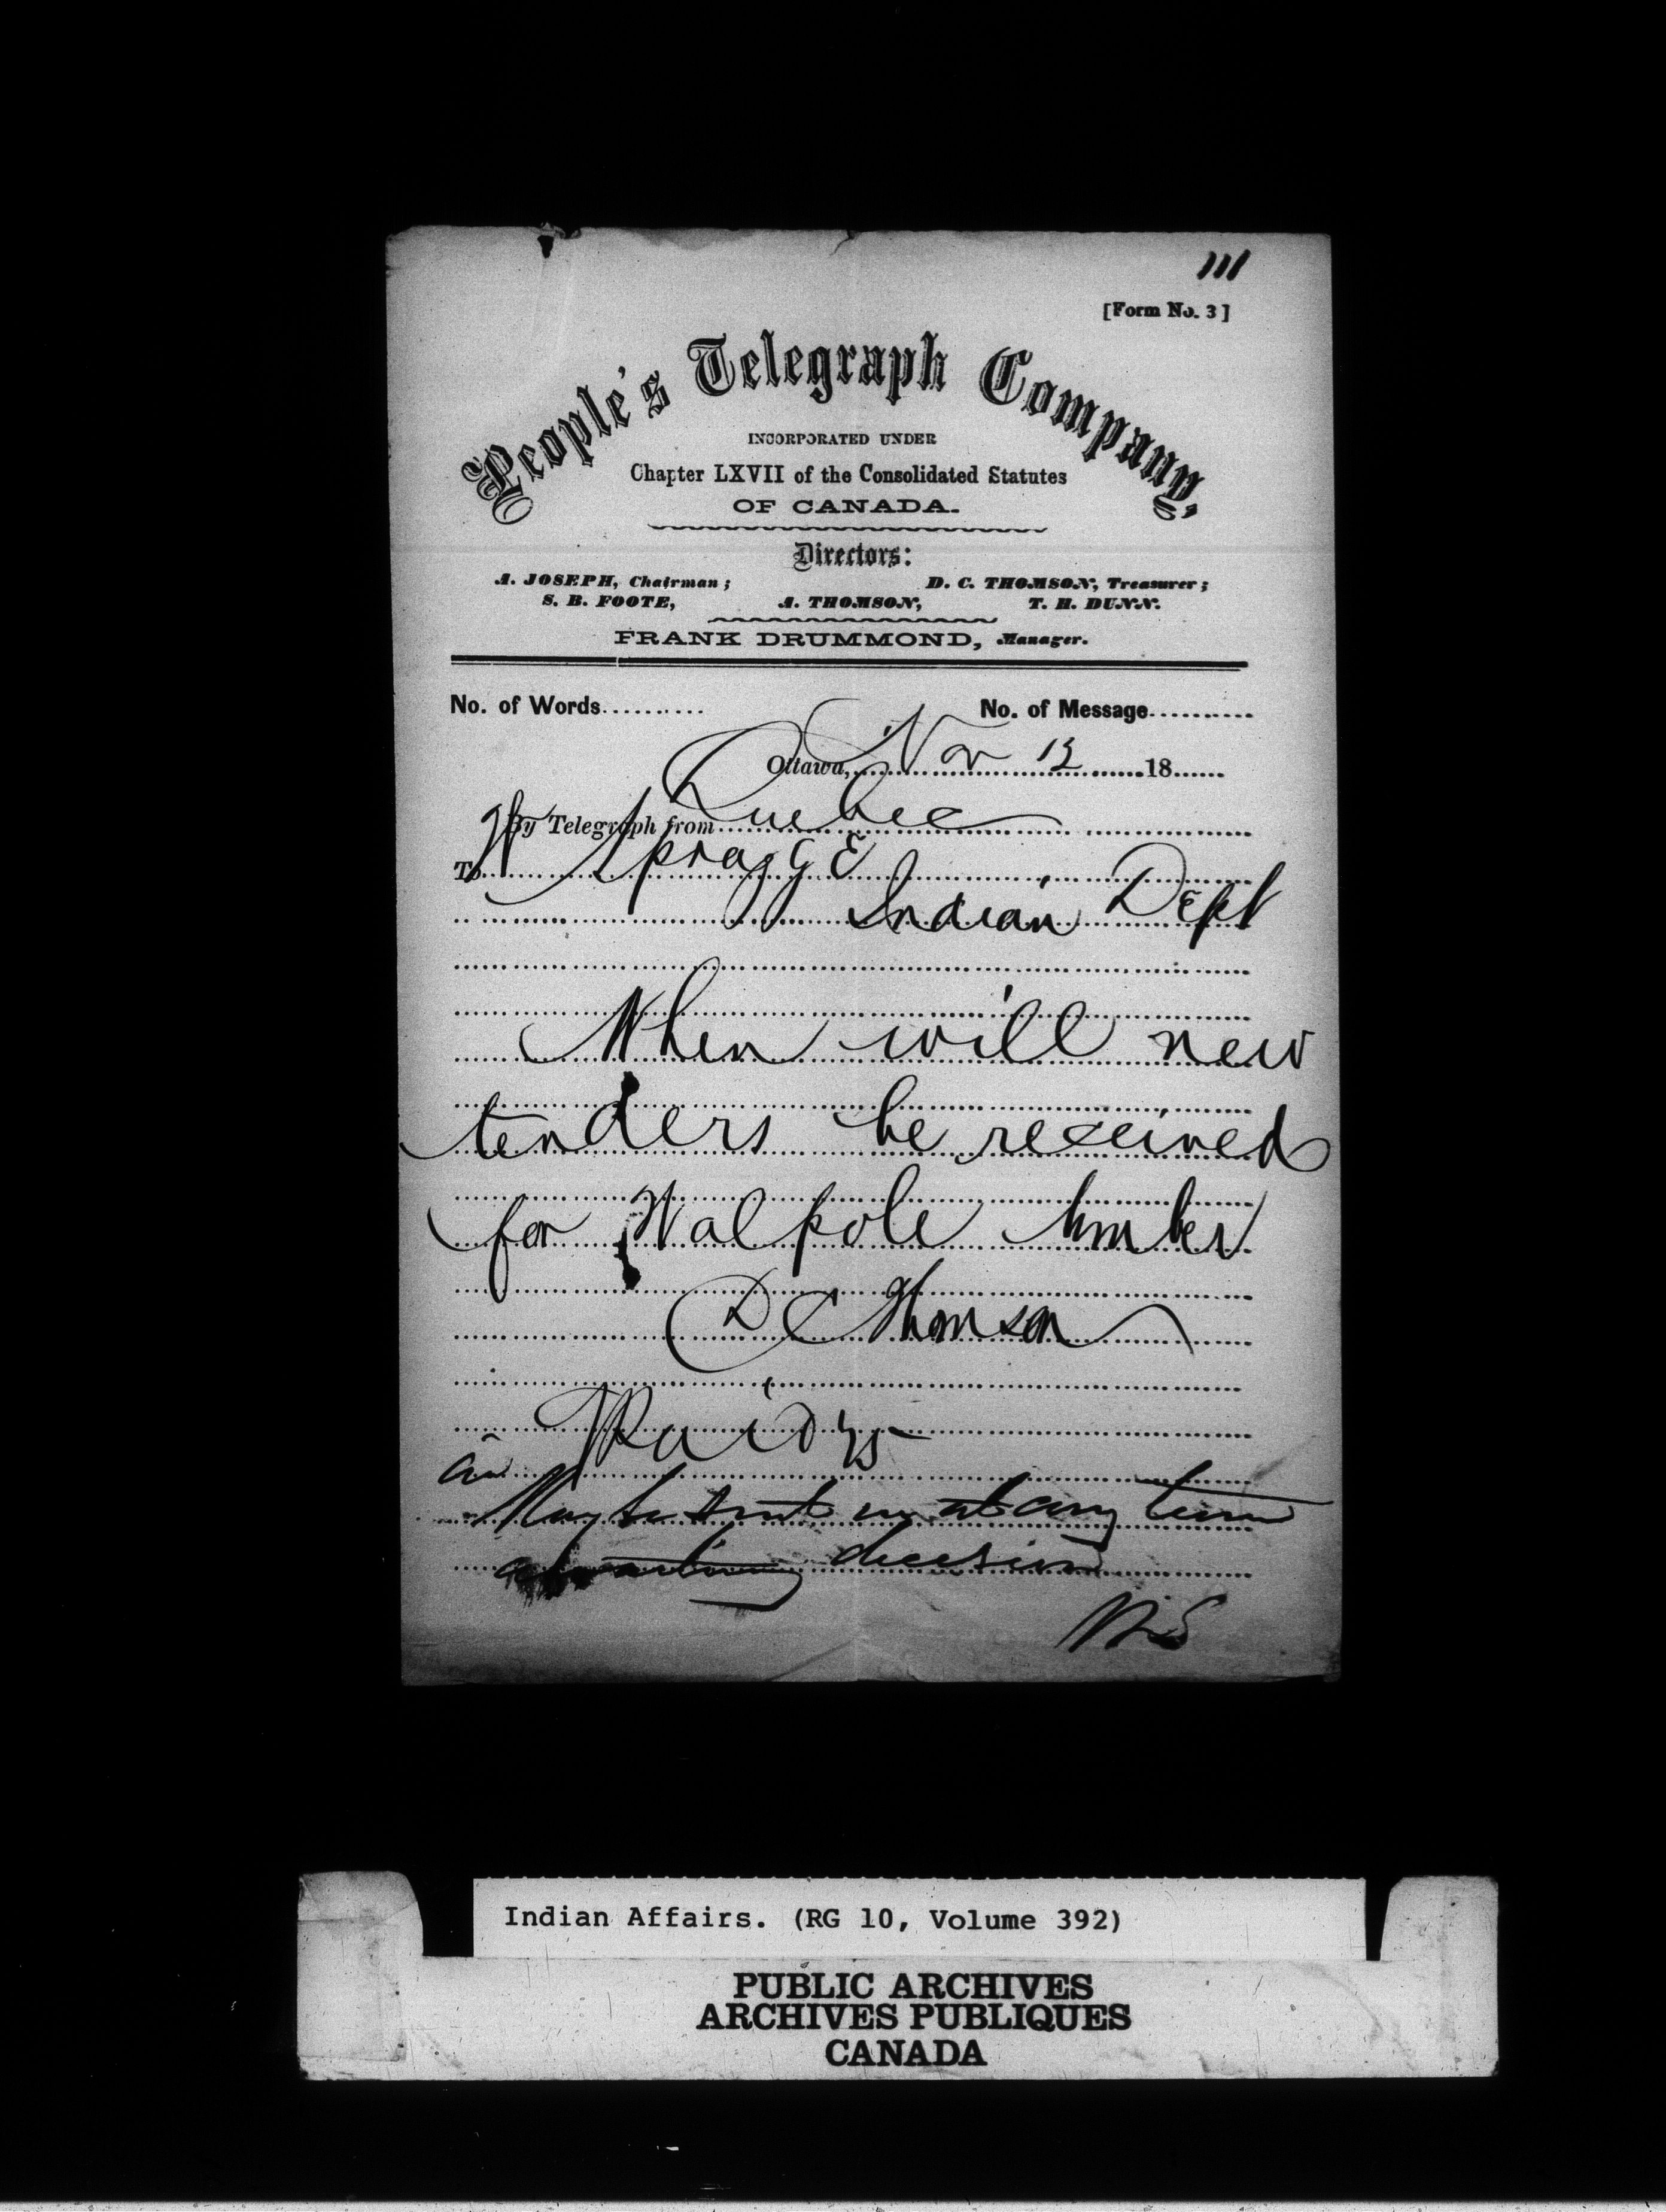 111
[Form No. 3]
People's Telegraph Company,
INCORPORATED UNDER
Chapter LXVII of the Consolidated Statutes
OF CANADA.
Directors:
A. JOSEPH, Chairman; D. C. THOMSON, Treasurer;
S. B. FOOTE, A. THOMSON, T. H. DUNN.
FRANK DRUMMOND, Manager.
No. of Words.......... No. of Message..........
Ottawa, Nov 13 18......
By Telegraph from Quebec
To Spragge
Indian Dept
When will new
tenders be received
for Walpole timber
D C Thomson
Paid
May be sent in at any time
decision
WS
Indian Affairs. (RG 10, Volume 392)
PUBLIC ARCHIVES
ARCHIVES PUBLIQUES
CANADA